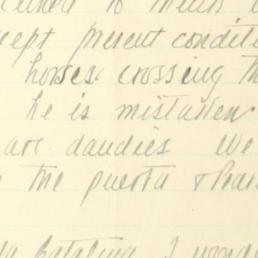 to
cept present conditi
horses crossing th
he is mistaken
are dandies We
the puerta &
Catalina I wonde